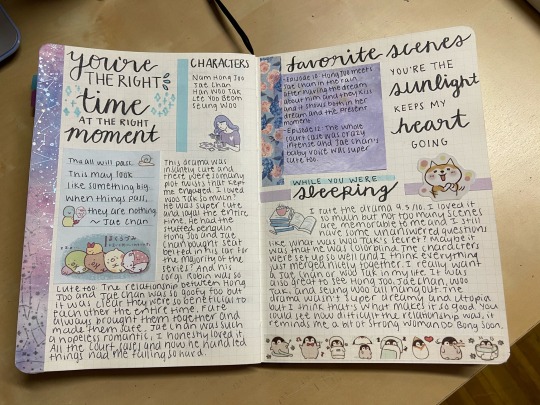 you're
THE RIGHT
time
AT THE RIGHT
moment
CHARACTERS
Nam Hong Joo
Jae Chan
Han Woo Tak
Lee Yoo Beom
Seung Woo
Tha all will pass.
This may look
like something big.
When things pass,
they are nothing
~ Jae Chan
This drama was
insanely cute and
there were so many
plot twists that kept
me engaged. I loved
Woo Tak so much!
He was super cute
and loyal the entire
time. He had the
stuffed penguin
Hong Joo and Jae
Chan bought seat
belted in his car for
the majority of the
series! And his
corgi Robin was so
cute too! The relationship between Hong
Joo and Jae Chan was so goofy too but
it was clear they were so beneficial to
each other the entire time. Fate
always brought them together and
made them safe. Jae Chan was such
a hopeless romantic, I honestly loved it.
All the court cases and how he handled
things had me falling so hard.
favorite scenes
-Episode 10: Hong Joo meets
Jae Chan in the rain
after having the dream
about him and they kiss
and it shows both in her
dream and the present
moment.
-Episode 12: The whole
court case was crazy
intense and Jae Chan's
baby voice was super
cute too.
YOU'RE THE
sunlight
KEEPS MY
heart
GOING
WHILE YOU WERE
sleeping
I rate the drama 9.5/10. I loved it
so much but not too many scenes
are memorable to me and I still
have some unanswered questions
like what was Woo Tak's secret? Maybe it
was that he was colorblind. The characters
were set up so well and I think everything
just merged nicely together. I really want
a Jae Chan or Woo Tak in my life. It was
also great to see Hong Joo, Jae Chan, Woo
Tak, and Seung Woo all hanging out. The
drama wasn't super dreamy and utopia,
but I think that's what makes it so good. You
could see how difficult the relationship was, it
reminds me a bit of Strong Woman Do Bong Soon.